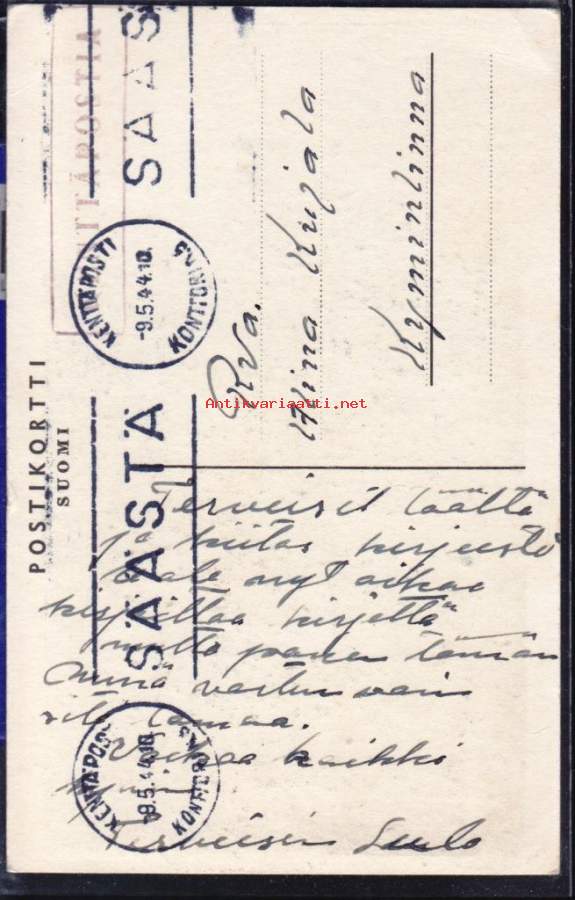 POSTIKORTTI
SUOMI
KENTTÄPOSTIA
SÄÄS
KENTTÄPOSTI
-9.5.44.10.
KONTTORI N:5
SÄÄSTÄ
KENTTÄPOSTI
-9.5.44.10.
KONTTORI N:5
Rva.
Aina Kujala
Kyminlinna
Antikvariaatti.net
Terveiset täältä
ja kiitos kirjeestä
ole nyt aikaa
kirjoittaa kirjettä
mutta panen tämän
Minä vastaan vain
Voikaa kaikki
hyvin.
Terveisin